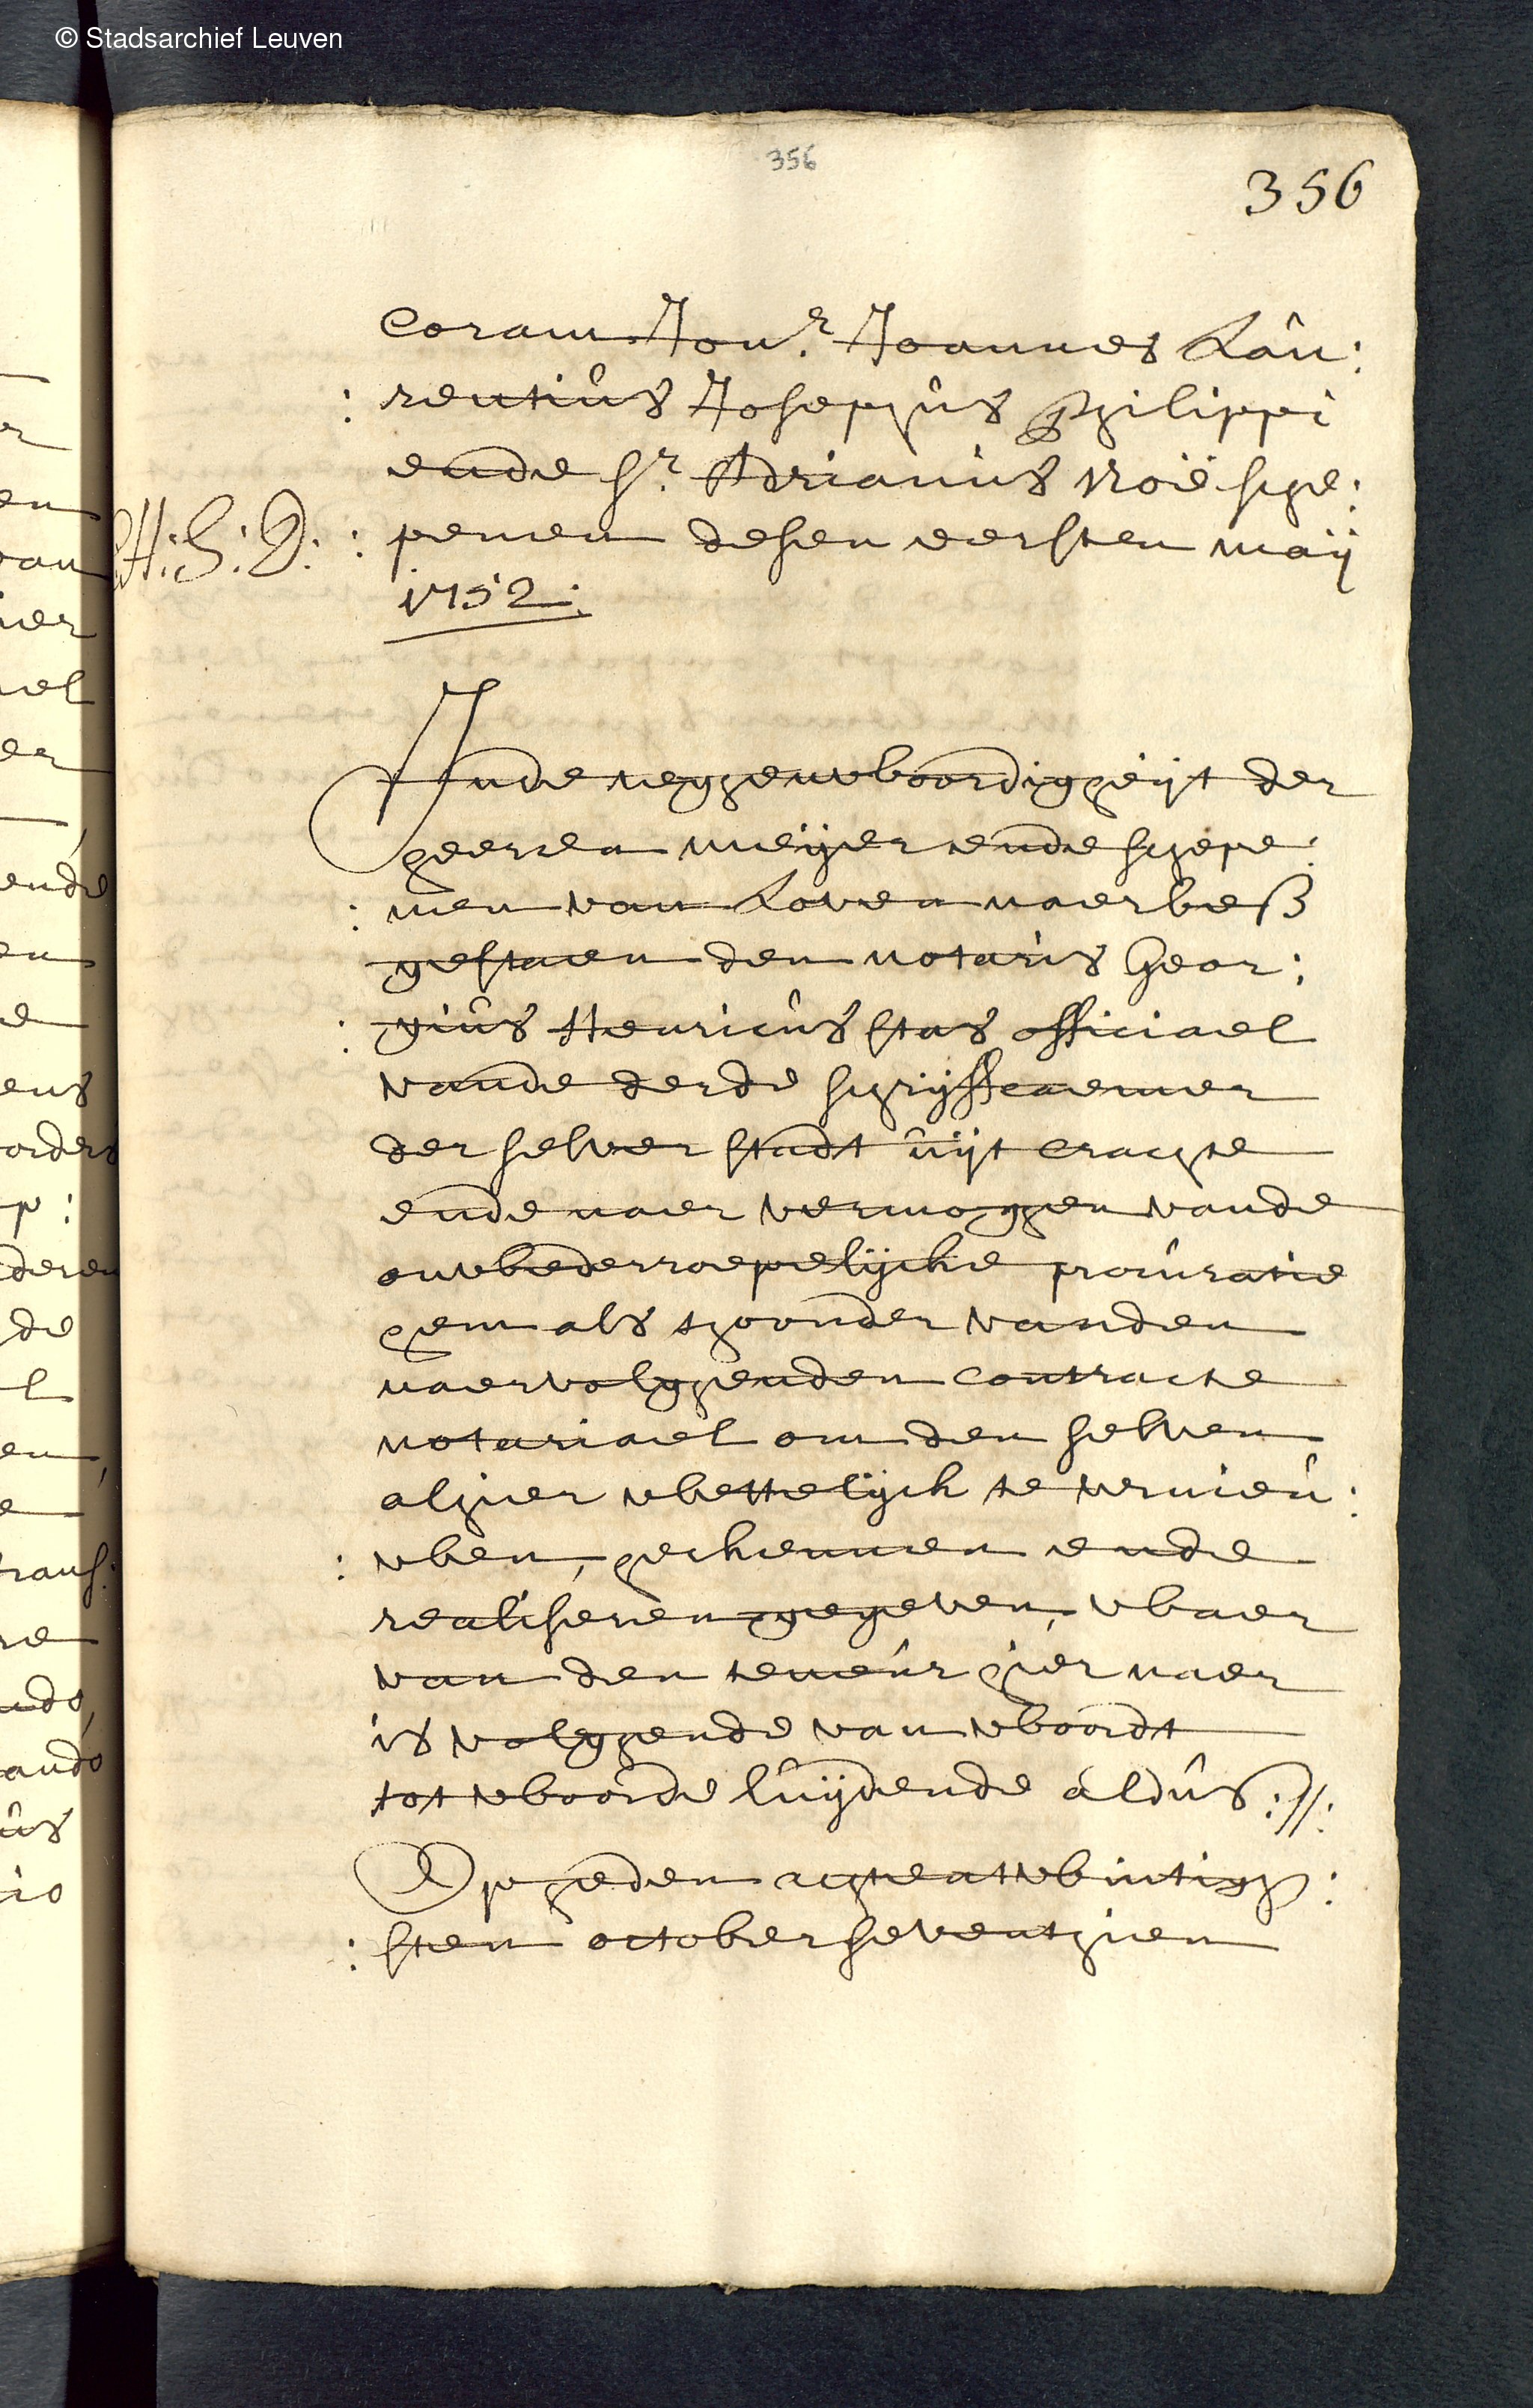 © Stadsarchief Leuven
356
356
Coram Jon.r Joannes Lau:
:rentius Josephus Philippi
ende s.r Adrianus Noë sche:
:penen desen eersten maij
1752:
H: S: D:
Inde tegghenwoordigheijt der
heeren meijer ende schepe:
:nen van Loven naerbes
gestaen den notaris Geor:
:gius Henricus Stas officiael
vande derde schrijffcaemer
der selver stadt uijt crachte
ende naer vermogghen vande
onwederroepelijcke procuratie
hem als thoonder vanden
naervolgghenden contracte
notariael om den selven
alhier wettelijck te vernieu:
:wen, herkennen ende
realiseren gegeven, waer
van den teneur hier naer
is volgghende van woordt
tot woorde luijdende aldus://:
Op heden achtentwintigh:
:sten october seventhien